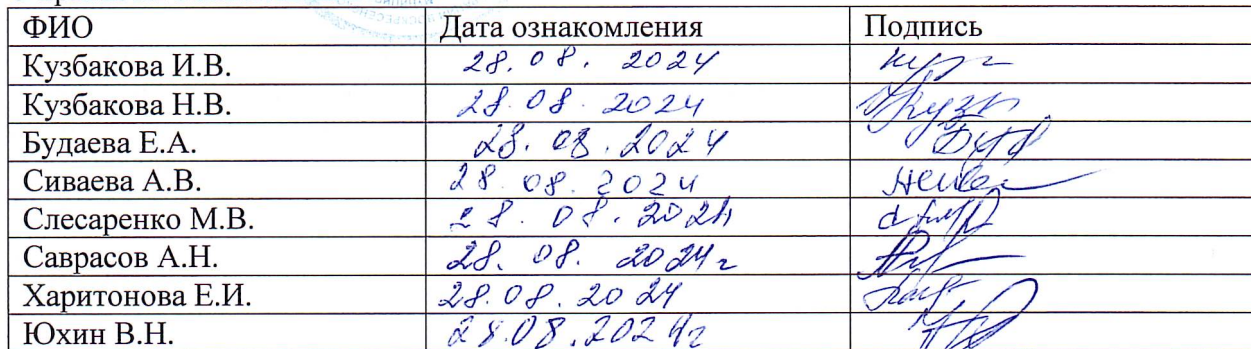 ФИО Дата ознакомления Подпись
Кузбакова И.В. 28.08.2024
Кузбакова Н.В. 28.08.2024
Будаева Е.А. 28.08.2024
Сиваева А.В. 28.08.2024
Слесаренко М.В. 28.08.2024
Саврасов А.Н. 28.08.2024г
Харитонова Е.И. 28.08.2024
Юхин В.Н. 28.08.2024г